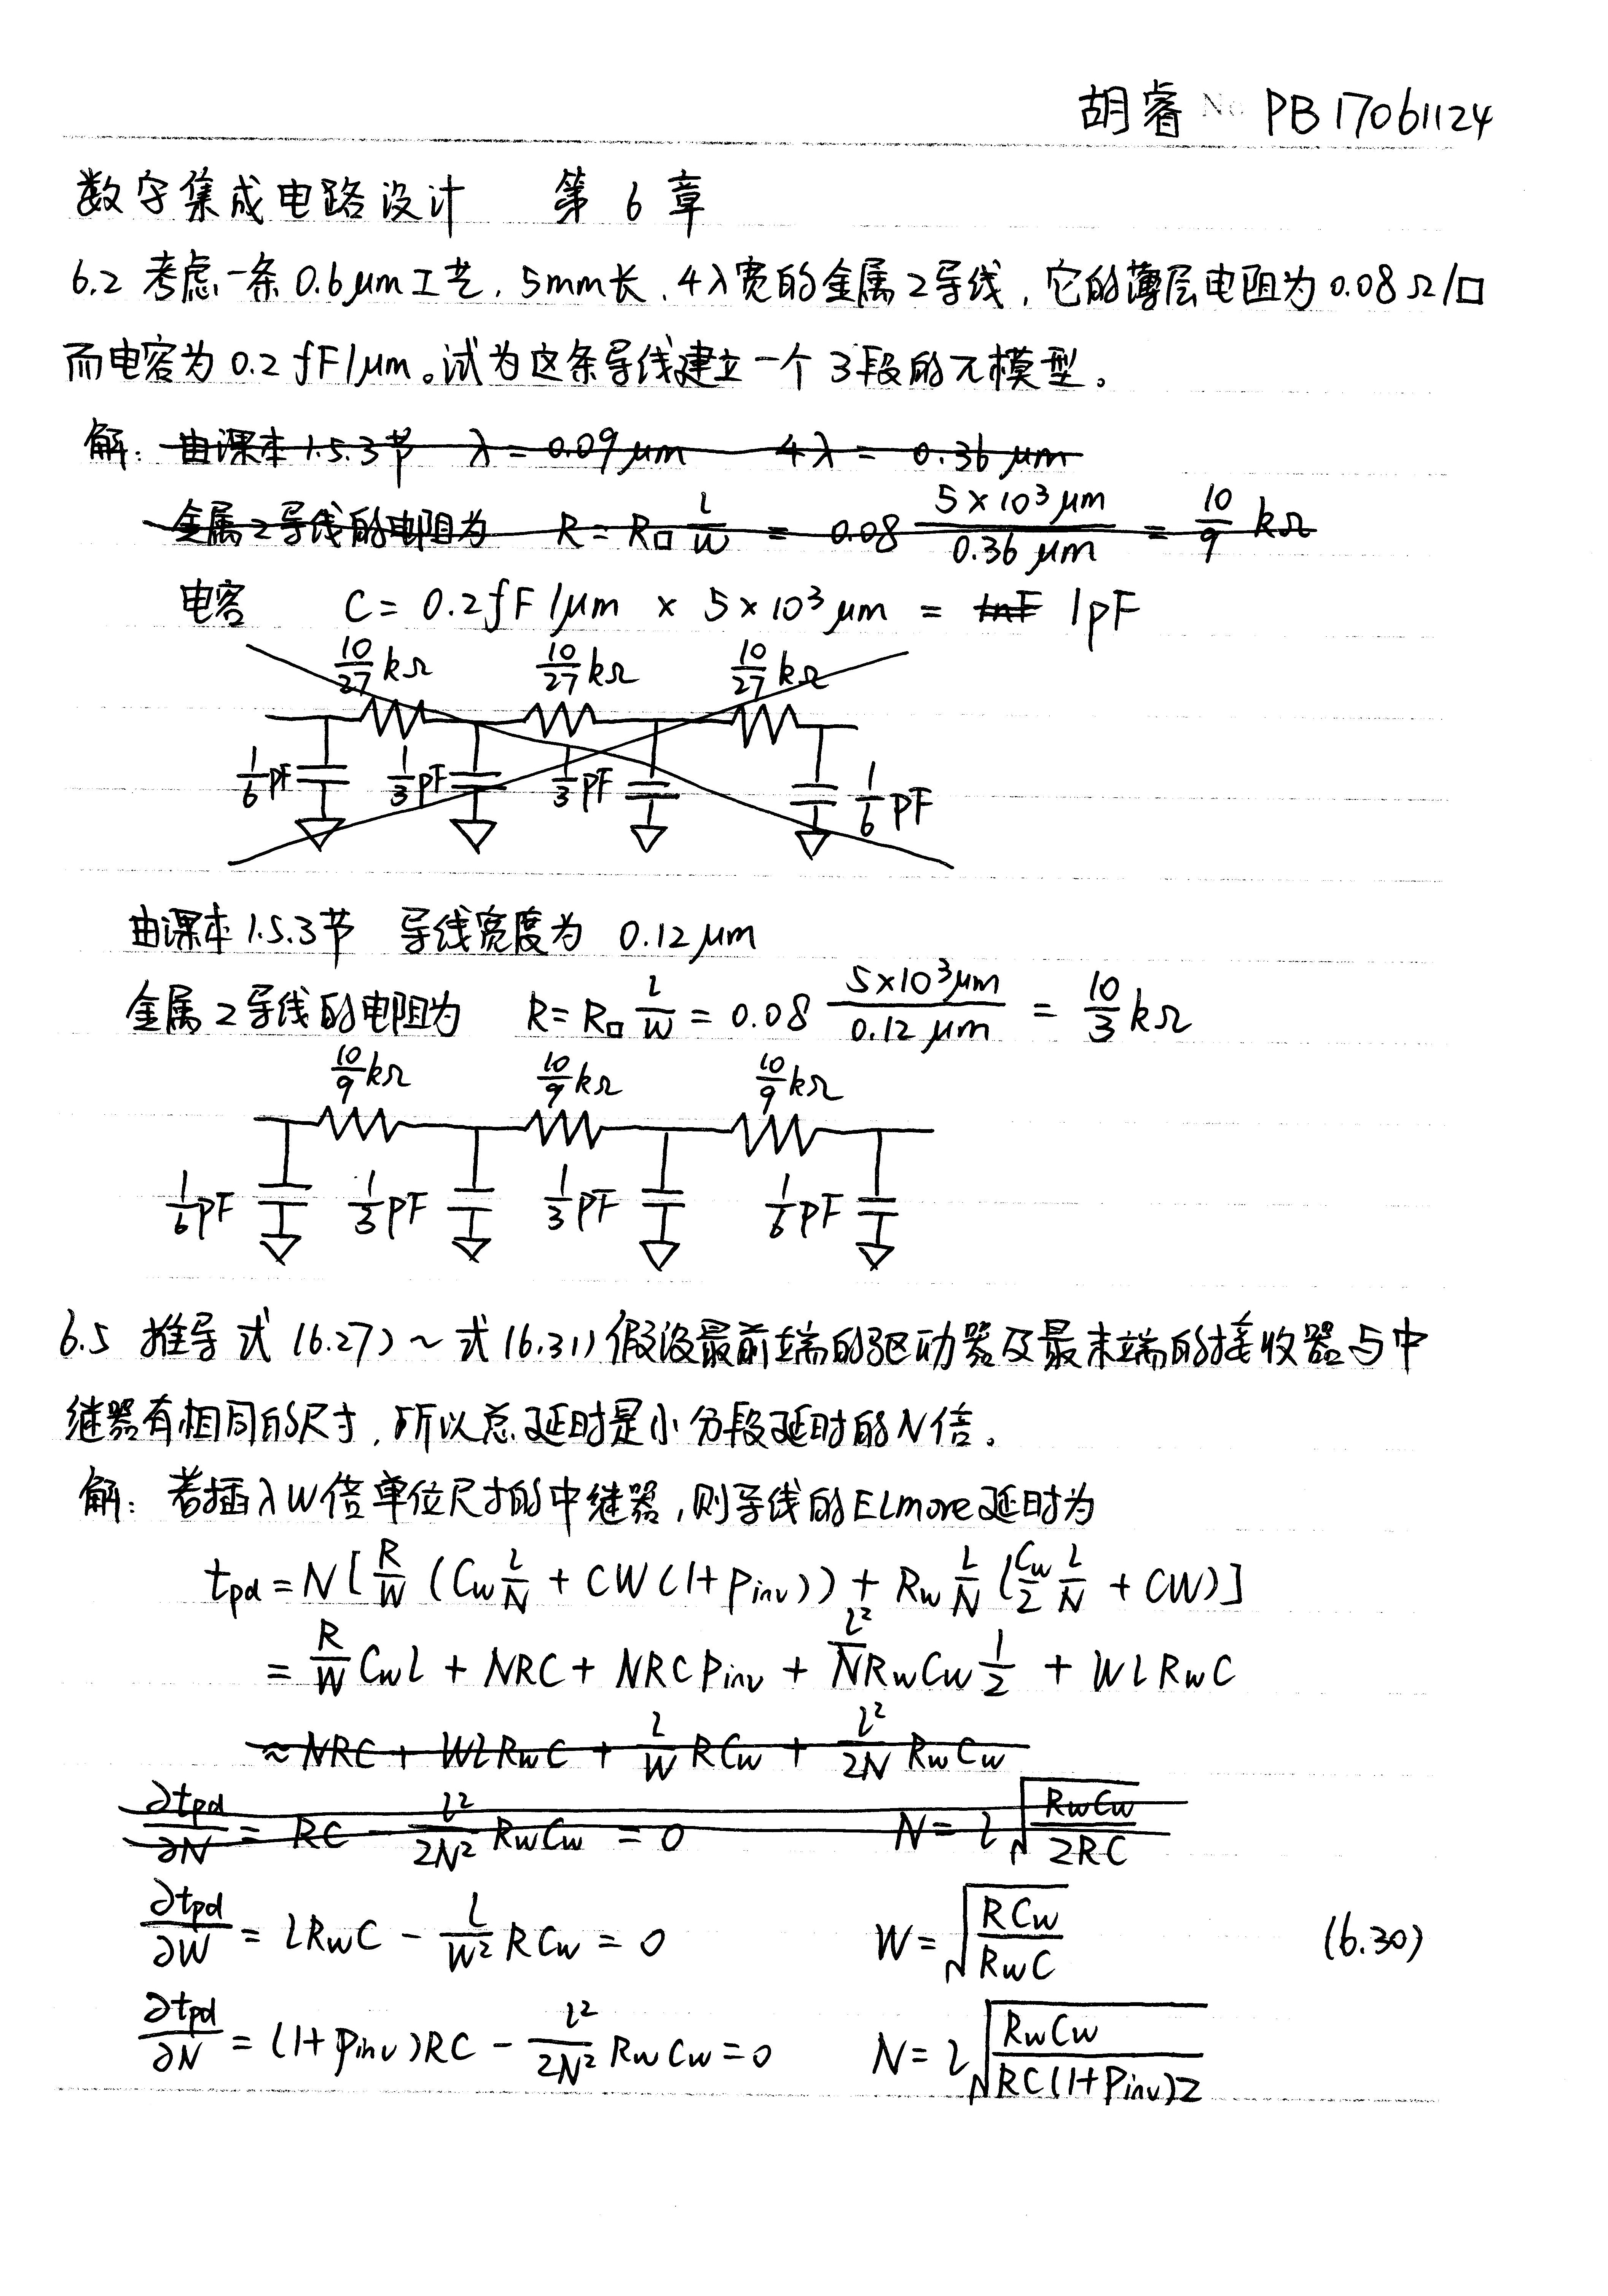 胡睿 No PB17061124
数字集成电路设计 第6章
6.2 考虑一条0.6μm工艺,5mm长,4λ宽的金属2导线,它的薄层电阻为0.08Ω/□
而电容为0.2fF/μm。试为这条导线建立一个3段的π模型。
解: 由课本1.5.3节 λ=0.09μm 4λ=0.36μm
金属2导线的电阻为 R=R□ l/W = 0.08 5×10³μm/0.36μm = 10/9 kΩ
电容 C=0.2fF/μm × 5×10³μm = 1nF 1pF
10/27 kΩ 10/27 kΩ 10/27 kΩ
1/6 pF 1/3 pF 1/3 pF 1/6 pF
由课本1.5.3节 导线宽度为 0.12μm
金属2导线的电阻为 R=R□ l/W = 0.08 5×10³μm/0.12μm = 10/3 kΩ
10/9 kΩ 10/9 kΩ 10/9 kΩ
1/6 pF 1/3 pF 1/3 pF 1/6 pF
6.5 推导式(6.27)~式(6.31)假设最前端的驱动器及最末端的接收器与中
继器有相同的尺寸,所以总延时是小分段延时的N倍。
解: 若插入W倍单位尺寸的中继器,则导线的ELmore延时为
tpd = N[R/W (Cw l/N + CW(1+pinv)) + Rw l/N (Cw/2 l/N + CW)]
= R/W Cw l + NRC + NRC pinv + l²/N Rw Cw 1/2 + W l Rw C
≈ NRC + W l Rw C + l/W RCw + l²/2N Rw Cw
∂tpd/∂N = RC - l²/2N² Rw Cw = 0 N = l√(RwCw/2RC)
∂tpd/∂W = l Rw C - l/W² RCw = 0 W = √(RCw/RwC) (6.30)
∂tpd/∂N = (1+pinv)RC - l²/2N² Rw Cw = 0 N = l√(RwCw/RC(1+Pinv)2)